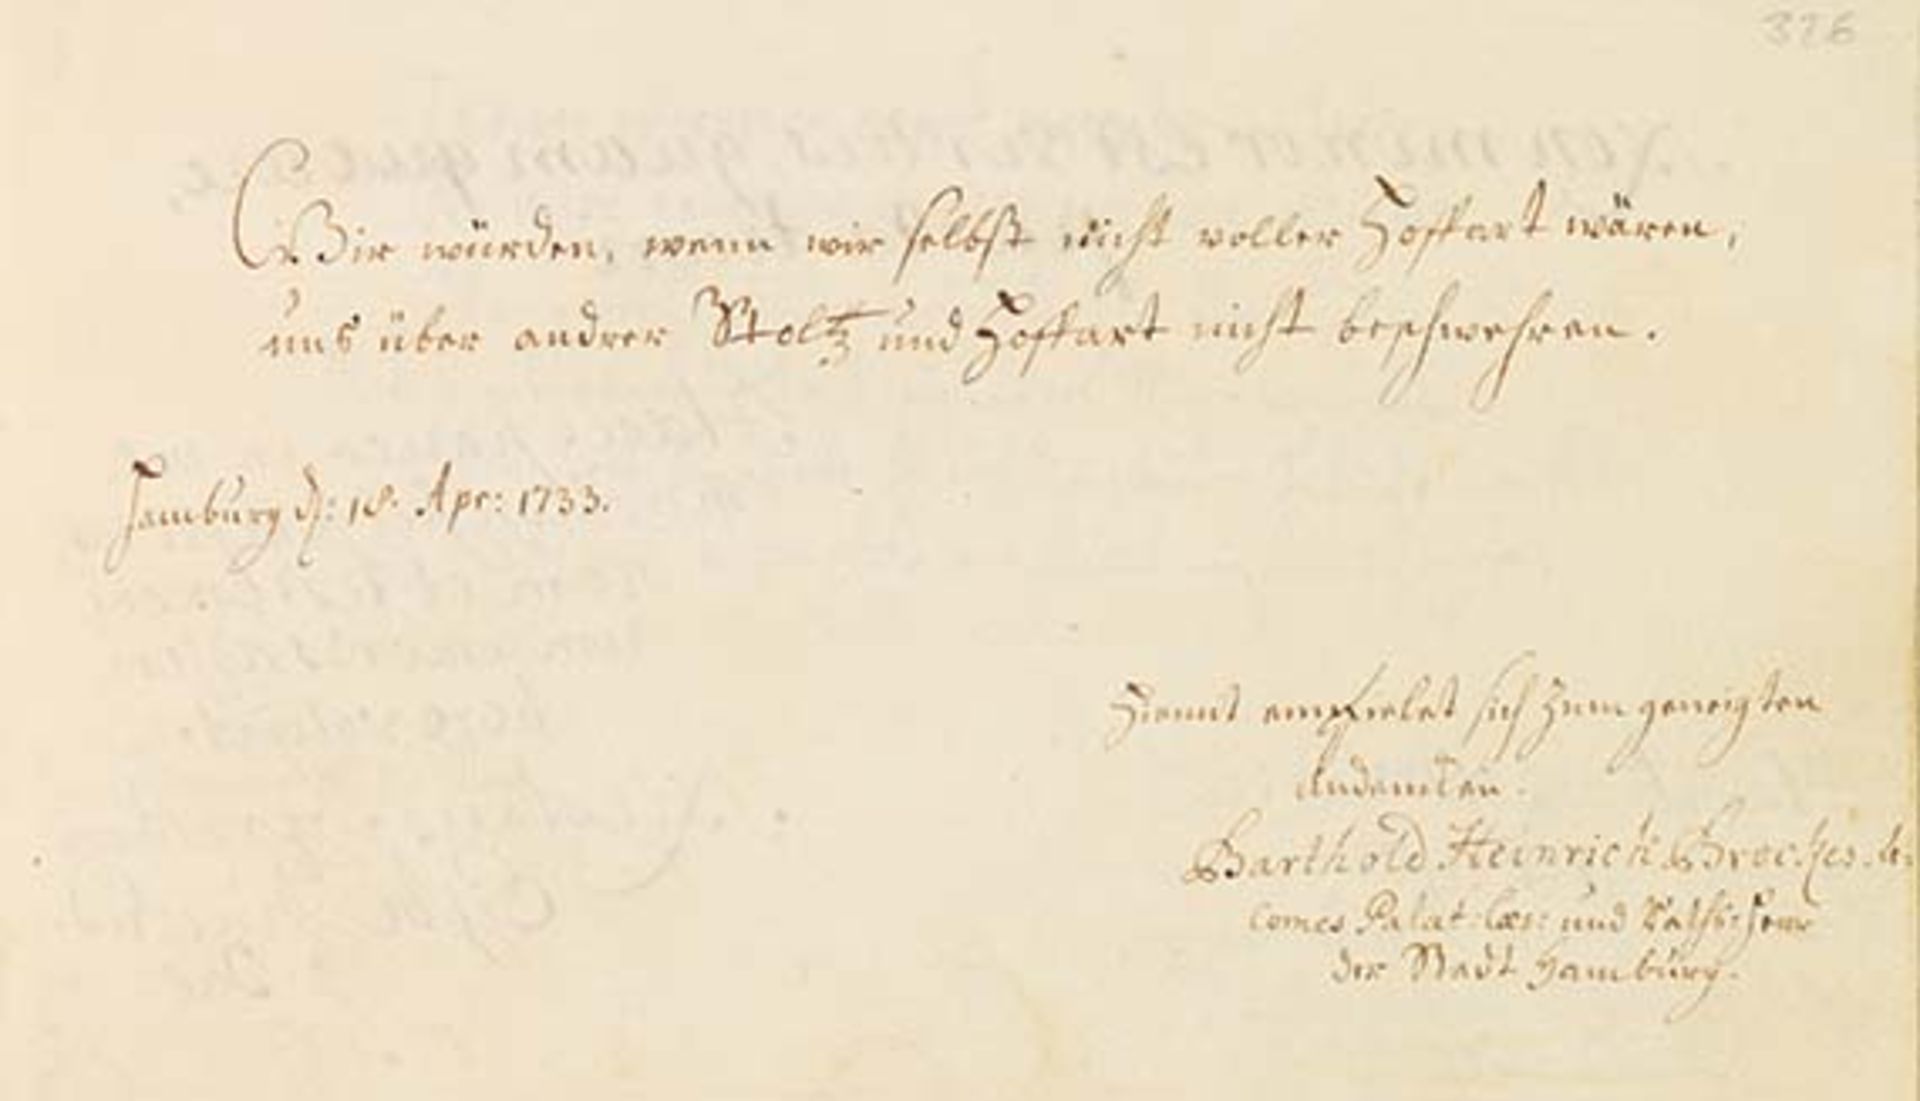 326
Wir würden, wenn wir selbst nicht voller Hoffart wären,
uns über andrer Stoltz und Hoffart nicht beschwehren.
Hamburg d: 18. Apr: 1733.
Hiemit empfielet sich zum geneigten
Andencken.
Barthold Heinrich Brockes. Lt.
Comes Palat: Caes: und Rathsherr
der Stadt Hamburg.